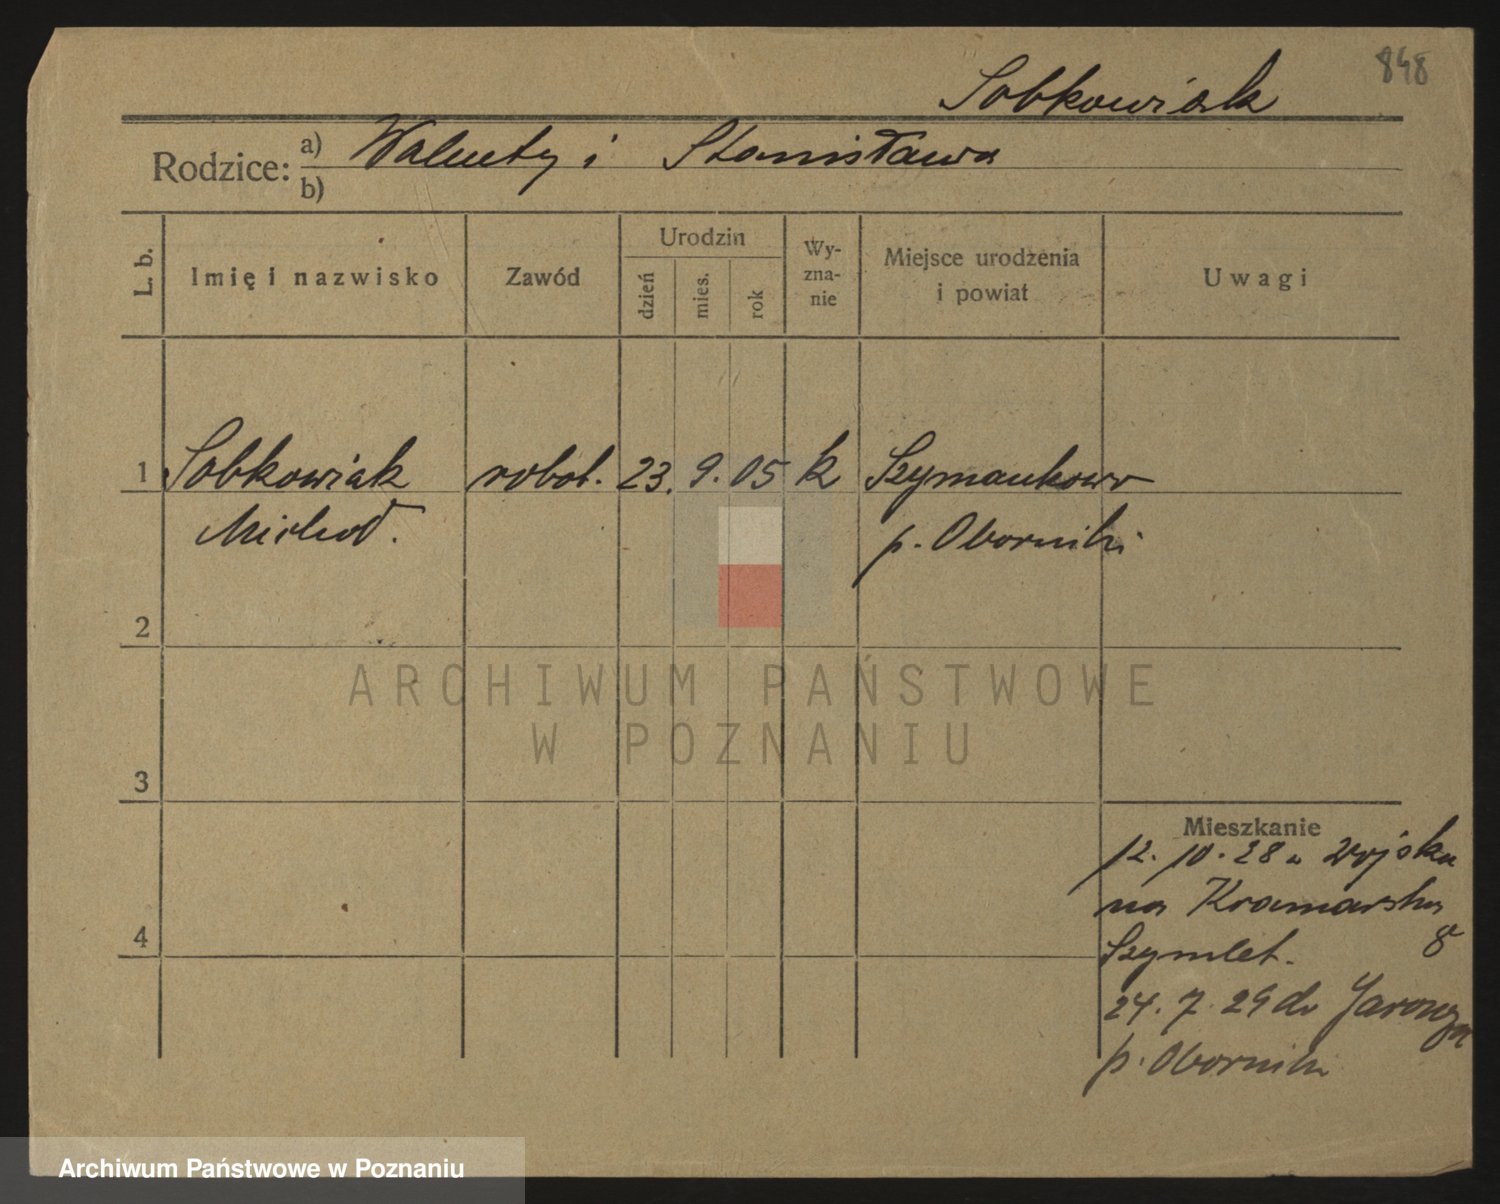 848
Sobkowiak
Rodzice: a) Walenty i Stanisława
b)
L. b.
Imię i nazwisko
Zawód
Urodzin
dzień
mies.
rok
Wy-
zna-
nie
Miejsce urodzenia
i powiat
Uwagi
1 Sobkowiak robot. 23. 9. 05 k Szymankowo
Michał. p. Oborniki
2
3
4
Mieszkanie
12. 10. 28 z wojska
na Kramarska
8
24. 7. 29 do
p. Oborniki
ARCHIWUM PAŃSTWOWE
W POZNANIU
Archiwum Państwowe w Poznaniu